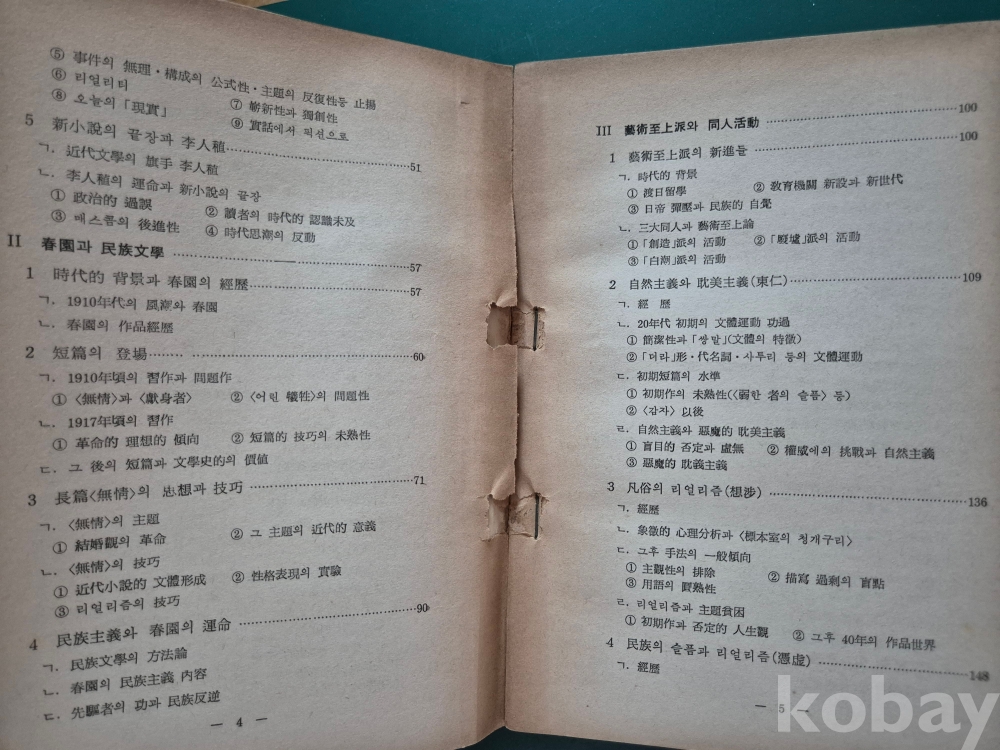 ⑤ 事件의 無理·構成의 公式性·主題의 反復性등 止揚
⑥ 리얼리티
⑦ 嶄新性과 獨創性
⑧ 오늘의「現實」
⑨ 實話에서 픽션으로
5 新小說의 끝장과 李人稙……51
ㄱ. 近代文學의 旗手 李人稙
ㄴ. 李人稙의 運命과 新小說의 끝장
① 政治的 過誤 ② 讀者의 時代的 認識未及
③ 매스콤의 後進性 ④ 時代思潮의 反動
II 春園과 民族文學……57
1 時代的 背景과 春園의 經歷……57
ㄱ. 1910年代의 風潮와 春園
ㄴ. 春園의 作品經歷
2 短篇의 登場……60
ㄱ. 1910年頃의 習作과 問題作
①〈無情〉과〈獻身者〉 ②〈어린 犧牲〉의 問題性
ㄴ. 1917年頃의 習作
① 革命的 理想的 傾向 ② 短篇的 技巧의 未熟性
ㄷ. 그 後의 短篇과 文學史的의 價値
3 長篇〈無情〉의 思想과 技巧……71
ㄱ.〈無情〉의 主題
① 結婚觀의 革命 ② 그 主題의 近代的 意義
ㄴ.〈無情〉의 技巧
① 近代小說的 文體形成 ② 性格表現의 實驗
③ 리얼리즘의 技巧
4 民族主義와 春園의 運命……90
ㄱ. 民族文學의 方法論
ㄴ. 春園의 民族主義 內容
ㄷ. 先驅者의 功과 民族反逆
— 4 —
III 藝術至上派와 同人活動……100
1 藝術至上派의 新進들……100
ㄱ. 時代的 背景
① 渡日留學 ② 敎育機關 新設과 新世代
③ 日帝 彈壓과 民族的 自覺
ㄴ. 三大同人과 藝術至上論
①「創造」派의 活動 ②「廢墟」派의 活動
③「白潮」派의 活動
2 自然主義와 耽美主義(東仁)……109
ㄱ. 經 歷
ㄴ. 20年代 初期의 文體運動 功過
① 簡潔性과「쌍말」(文體의 特徵)
②「더라」形·代名詞·사투리 등의 文體運動
ㄷ. 初期短篇의 水準
① 初期作의 未熟性(〈弱한 者의 슬픔〉등)
②〈감자〉以後
ㄹ. 自然主義와 惡魔的 耽美主義
① 盲目的 否定과 虛無 ② 權威에의 挑戰과 自然主義
③ 惡魔的 耽美主義
3 凡俗의 리얼리즘(想涉)……136
ㄱ. 經歷
ㄴ. 象徵的 心理分析과〈標本室의 청개구리〉
ㄷ. 그후 手法의 一般傾向
① 主觀性의 排除 ② 描寫 過剩의 盲點
③ 用語의 圓熟性
ㄹ. 리얼리즘과 主題貧困
① 初期作과 否定的 人生觀 ② 그후 40年의 作品世界
4 民族의 슬픔과 리얼리즘(憑虛)……148
ㄱ. 經歷
— 5 —
kobay